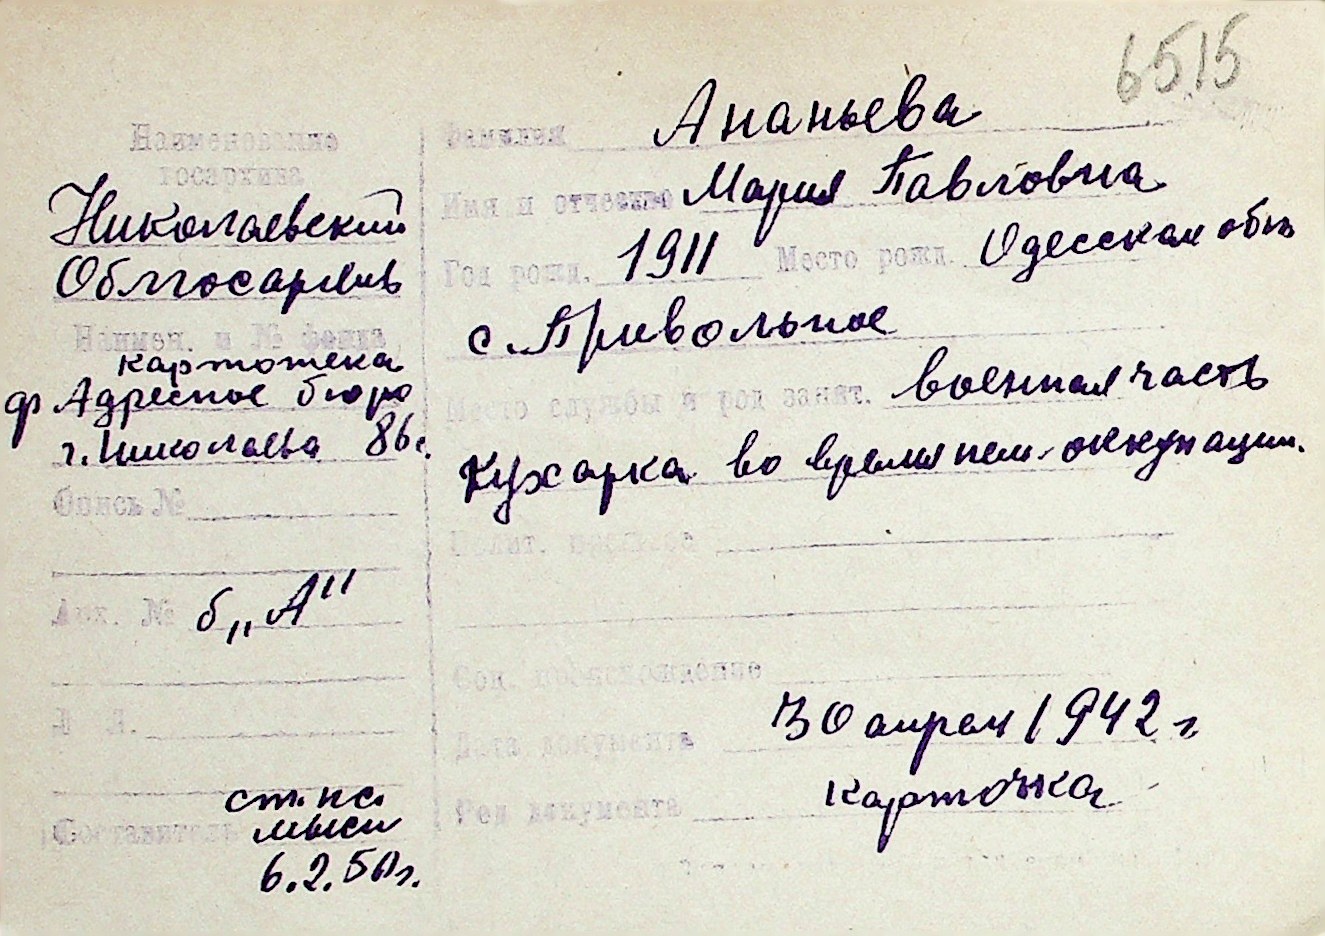 6515
Наименование
госархива
Николаевский
Облгосархив
Наимен. и № фонда
картотека
ф Адресное бюро
г. Николаева 86с.
Опись №
Арх. № б „А"
Л Л.
Составитель ст. нс.
6.2.50г.
Фамилия Ананьева
Имя и отчество Мария Павловна
Год рожд. 1911 Место рожд. Одесская обл
с. Привольное
Место службы и род занят. военная часть
Кухарка во время нем. оккупации.
Полит. прошлое
Соц. происхождение
Дата документа 30 апреля 1942 г.
Род документа карточка